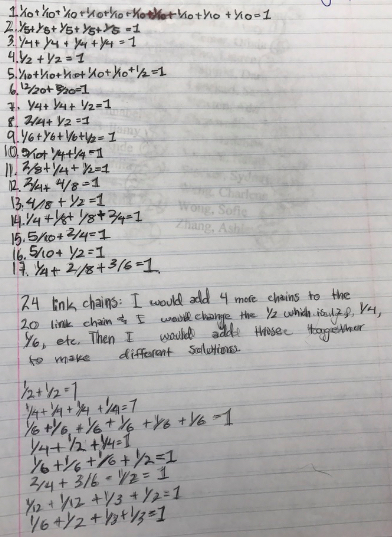 1. 1/10+1/10+1/10+1/10+1/10+1/10+1/10+1/10+1/10+1/10=1
2. 1/5+1/5+1/5+1/5+1/5=1
3. 1/4+1/4+1/4+1/4=1
4. 1/2+1/2=1
5. 1/10+1/10+1/10+1/10+1/10+1/2=1
6. 12/20+ =1
7. 1/4+1/4+1/2=1
8. 2/4+1/2=1
9. 1/6+1/6+1/6+1/2=1
10. 5/10+1/4+1/4=1
11. 2/8+1/4+1/2=1
12. 2/4+4/8=1
13. 4/8+1/2=1
14. 1/4+1/8+1/8+2/4=1
15. 5/10+2/4=1
16. 5/10+1/2=1
17. 1/4+2/8+3/6=1
24 link chains: I would add 4 more chains to the
20 link chain & I would change the 1/2 which is 12, 1/4,
1/6, etc. Then I would add those together
to make different solutions.
1/2+1/2=1
1/4+1/4+1/4+1/4=1
1/6+1/6+1/6+1/6+1/6+1/6=1
1/4+1/2+1/4=1
1/6+1/6+1/6+1/2=1
2/4+3/6=1/2=1
1/12+1/12+1/3+1/2=1
1/6+1/2+1/3+1/3=1
Wong, Sofie
Zhang,